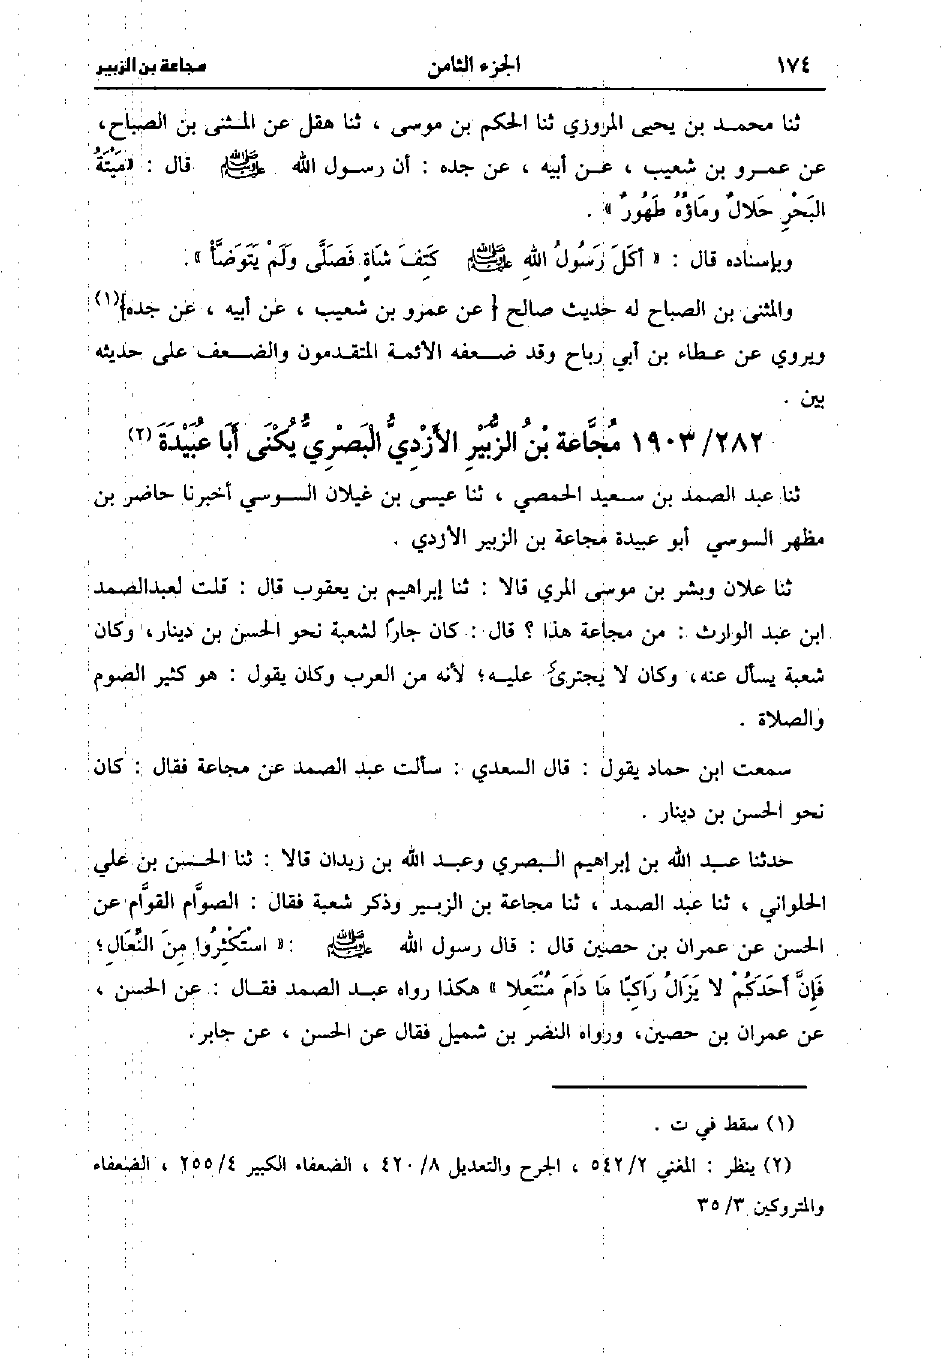 ١٧٤ الجزء الثامن مجاعة بن الزبير
ثنا محمد بن يحيى المروزي ثنا الحكم بن موسى ، ثنا هقل عن المثنى بن الصباح،
عن عمرو بن شعيب ، عن أبيه ، عن جده : أن رسول الله ﷺ قال : «مَيْتَةُ
البَحْرِ حَلالٌ ومَاؤُهُ طَهُورٌ» .
وبإسناده قال : « أَكَلَ رَسُولُ الله ﷺ كَتِفَ شَاةٍ فَصَلَّى وَلَمْ يَتَوَضَّأْ».
والمثنى بن الصباح له حديث صالح { عن عمرو بن شعيب ، عن أبيه ، عن جده}(١)
ويروي عن عطاء بن أبي رباح وقد ضعفه الأئمة المتقدمون والضعف على حديثه
بين .
١٩٠٣/٢٨٢ مُجَّاعة بْنُ الزُّبَيْرِ الأَزْدِيُّ البَصْرِيُّ يُكْنَى أَبَا عُبَيْدَةَ (٢)
ثنا عبد الصمد بن سعيد الحمصي ، ثنا عيسى بن غيلان السوسي أخبرنا حاضر بن
مظهر السوسي أبو عبيدة مجاعة بن الزبير الأزدي .
ثنا علان وبشر بن موسى المري قالا : ثنا إبراهيم بن يعقوب قال : قلت لعبدالصمد
ابن عبد الوارث : من مجاعة هذا ؟ قال : كان جارًا لشعبة نحو الحسن بن دينار، وكان
شعبة يسأل عنه، وكان لا يجترئ عليه؛ لأنه من العرب وكان يقول : هو كثير الصوم
والصلاة .
سمعت ابن حماد يقول : قال السعدي : سألت عبد الصمد عن مجاعة فقال : كان
نحو الحسن بن دينار .
حدثنا عبد الله بن إبراهيم البصري وعبد الله بن زيدان قالا : ثنا الحسن بن علي
الحلواني ، ثنا عبد الصمد ، ثنا مجاعة بن الزبير وذكر شعبة فقال : الصوَّام القوَّام عن
الحسن عن عمران بن حصين قال : قال رسول الله ﷺ :« اسْتَكْثِرُوا مِنَ النِّعَالِ؛
فَإِنَّ أَحَدَكُمْ لا يَزَالُ رَاكِبًا مَا دَامَ مُنْتَعِلا » هكذا رواه عبد الصمد فقال : عن الحسن ،
عن عمران بن حصين، ورواه النضر بن شميل فقال عن الحسن ، عن جابر.
(١) سقط في ت .
(٢) ينظر : المغني ٥٤٢/٢ ، الجرح والتعديل ٤٢٠/٨ ، الضعفاء الكبير ٢٥٥/٤ ، الضعفاء
والمتروكين ٣٥/٣